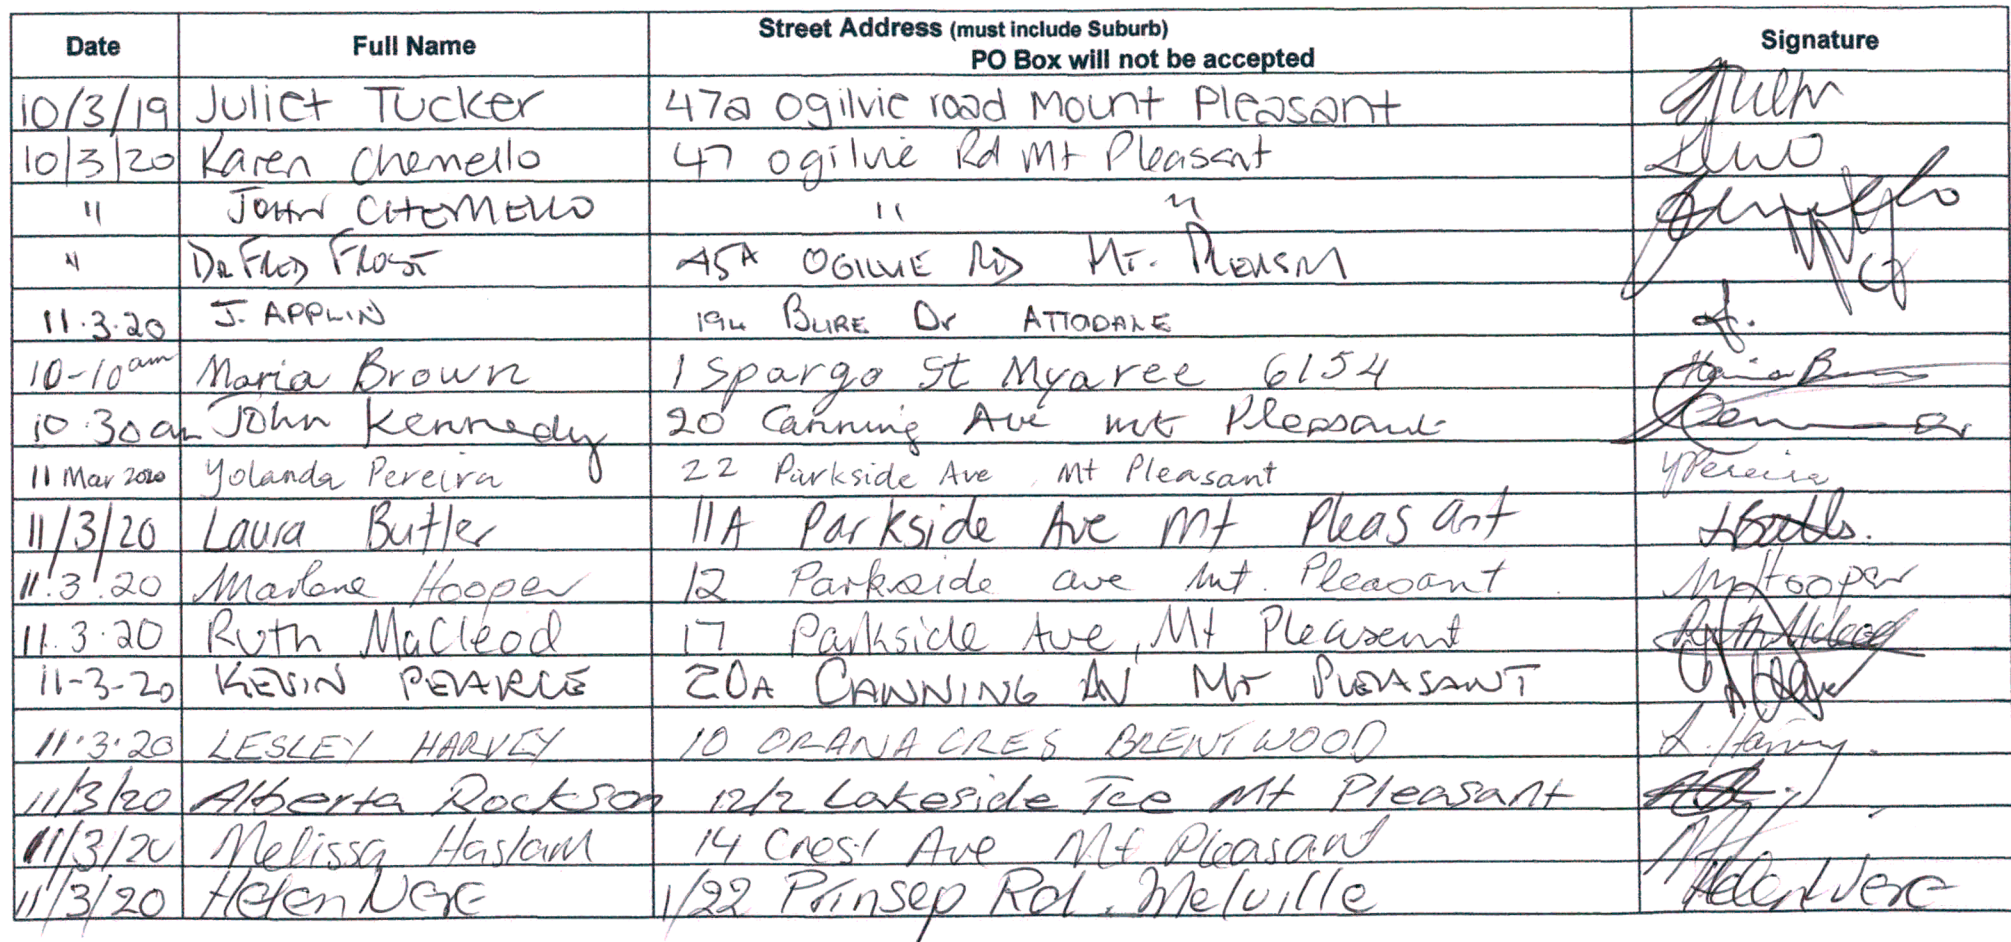 Date Full Name Street Address (must include Suburb) Signature
PO Box will not be accepted
10/3/19 Juliet Tucker 47a Ogilvie road Mount Pleasant
10/3/20 Karen Chemello 47 Ogilvie Rd Mt Pleasant
" JOHN CHEMELLO " "
" DR FRED FROST 45A OGILVIE RD MT.
11.3.20 J. APPLIN BURE Dr ATTADALE
10-10am Maria Brown 1 Spargo St Myaree 6154 Maria B
10.30am John Kennedy 20 Canning Ave Mt Pleasant
11 Mar 2020 Yolanda Pereira 22 Parkside Ave, Mt Pleasant YPereira
11/3/20 Laura Butler 11A Parkside Ave Mt Pleasant
11.3.20 Marlene Hooper 12 Parkside ave Mt. Pleasant M Hooper
11.3.20 Ruth MacLeod 17 Parkside Ave, Mt Pleasent Ruth McLeod
11-3-20 KEVIN PEARCE 20A CANNING AV MT PLEASANT
11.3.20 LESLEY HARVEY 10 ORANA CRES BRENTWOOD L. Harvey.
11/3/20 Alberta Rockson 12/2 Lakeside Tce Mt Pleasant
11/3/20 Melissa Haslam 14 Crest Ave Mt Pleasant
11/3/20 Helen Vere 1/22 Prinsep Rd, Melville Helen Vere